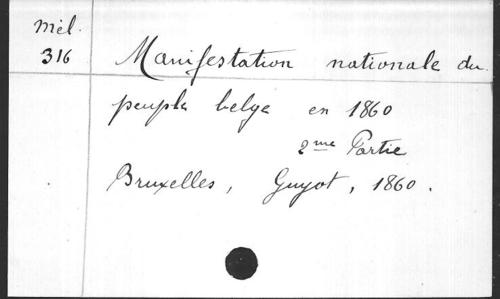 Mél.
316
Manifestation nationale du
peuple belge en 1860
2me Partie
Bruxelles, Guyot, 1860.